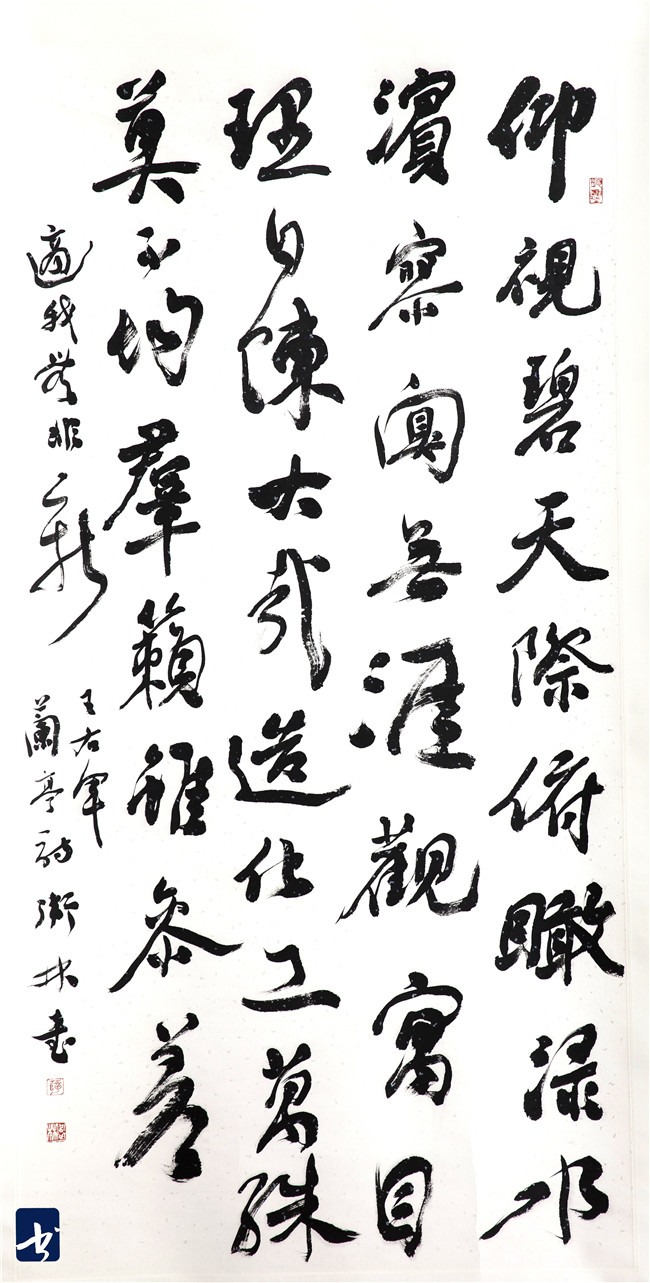 仰視碧天際俯瞰渌水
濱寥闃無涯觀寓目
理自陳大哉造化工萬殊
莫不均羣籟雖參差
適我無非新
王右軍
蘭亭詩 林書
书